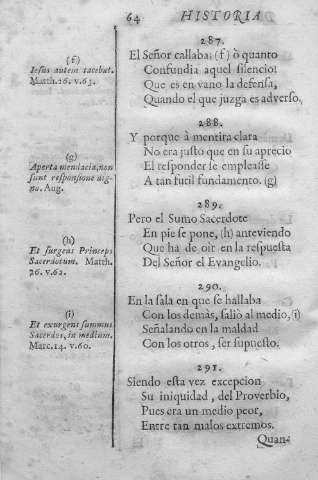 64 HISTORIA
287.
El Señor callaba: (f) ò quanto
Confundia aquel silencio!
Que es en vano la defensa,
Quando el que juzga es adverso.
(f)
Iesus autem tacebat.
Matth. 26. v. 63.
288.
Y porque à mentira clara
No era justo que en su aprecio
El responder se empleasse
A tan futil fundamento. (g)
(g)
Aperta mendacia, non
sunt responsione dig-
na. Aug.
289.
Pero el Sumo Sacerdote
En pie se pone, (h) anteviendo
Que ha de oir en la respuesta
Del Señor el Evangelio.
(h)
Et surgens Princeps
Sacerdotum. Matth.
26. v. 62.
290.
En la sala en que se hallaba
Con los demàs, saliò al medio, (i)
Señalando en la maldad
Con los otros, ser supuesto.
(i)
Et exurgens summus
Sacerdos, in medium.
Marc. 14. v. 60.
291.
Siendo esta vez excepcion
Su iniquidad, del Proverbio,
Pues era un medio peor,
Entre tan malos extremos.
Quan-